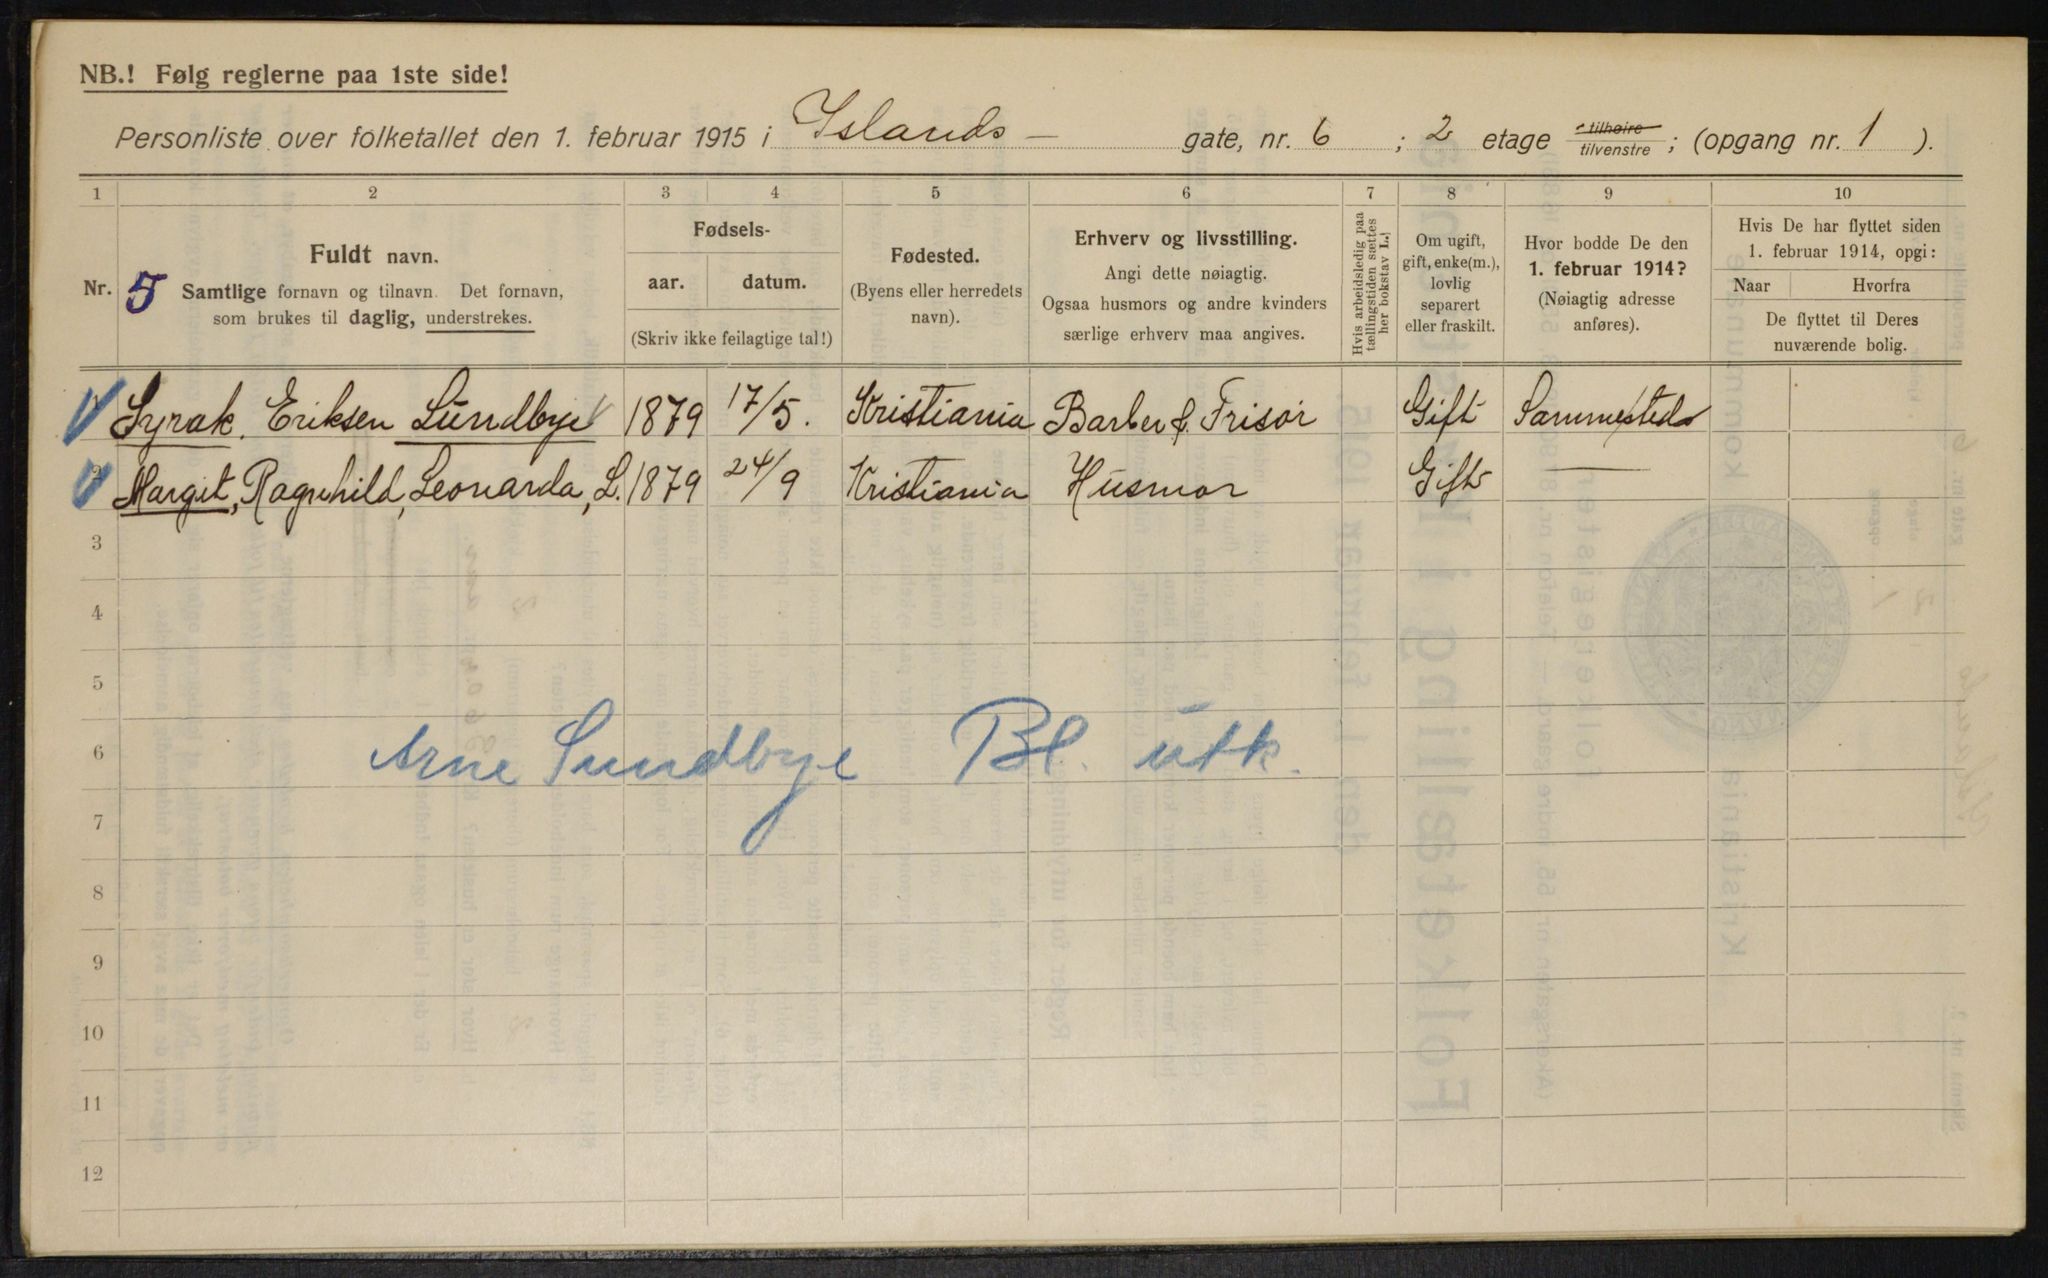 NB.! Følg reglerne paa 1ste side!
Personliste over folketallet den 1. februar 1915 i Islands- gate, nr. 6 ; 2 etage tilhøire tilvenstre ; (opgang nr. 1 ).
1 2 3 4 5 6 7 8 9 10
Nr. 5
Fuldt navn.
Samtlige fornavn og tilnavn. Det fornavn,
som brukes til daglig, understrekes.
Fødsels-
aar. datum.
(Skriv ikke feilagtige tal!)
Fødested.
(Byens eller herredets
navn).
Erhverv og livsstilling.
Angi dette nøiagtig.
Ogsaa husmors og andre kvinders
særlige erhverv maa angives.
Hvis arbeidsledig paa
tællingstiden sættes
her bokstav L.
Om ugift,
gift, enke(m.),
lovlig
separert
eller fraskilt.
Hvor bodde De den
1. februar 1914?
(Nøiagtig adresse
anføres).
Hvis De har flyttet siden
1. februar 1914, opgi:
Naar Hvorfra
De flyttet til Deres
nuværende bolig.
1 Syrak. Eriksen Lundbye 1879 17/5. Kristiania Barber & Frisør Gift Sammesteds
2 Margit, Ragnhild, Leonarda, L. 1879 24/9 Kristiania Husmor Gift —
3
4
5
6
Arne Lundbye Bl. utk.
7
8
9
10
11
12